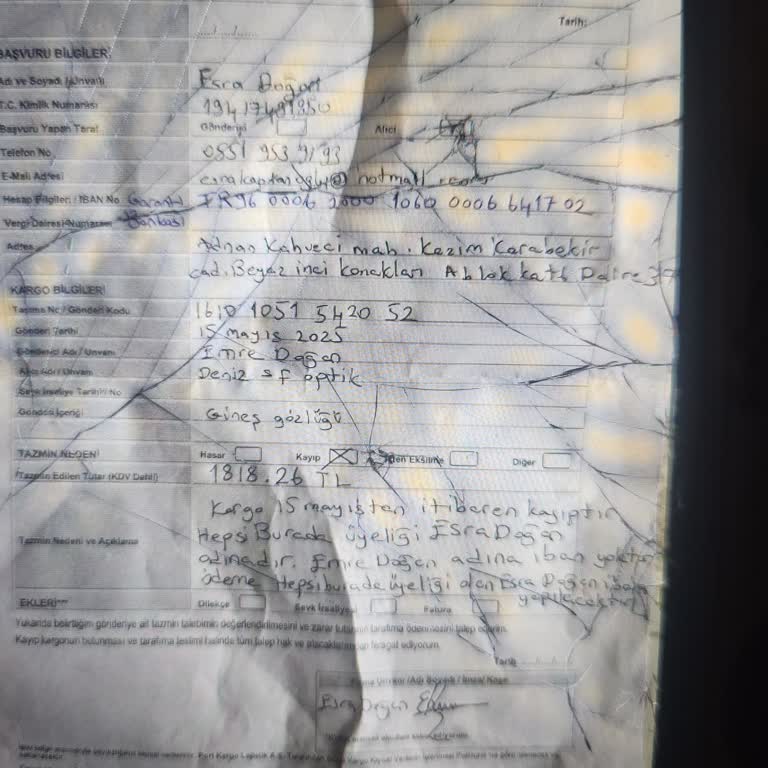 Tarih:
BAŞVURU BİLGİLERİ
Adı ve Soyadı / Unvanı Esra Doğan
T.C. Kimlik Numarası
Başvuru Yapan Taraf Gönderici Alıcı
Telefon No 0551 953 9193
E-Mail Adresi
Hesap Bilgileri / IBAN No Garanti
Vergi Dairesi/Numarası Bankası
Adres Adnan Kahveci mah. Kazim Karabekir
cad. Beyaz inci konakları A blok kat6 Daire
KARGO BİLGİLERİ
Taşıma No / Gönderi Kodu 1610 1051 5420 52
Gönderi Tarihi 15 mayıs 2025
Gönderici Adı / Unvanı Emre Doğan
Alıcı Adı / Unvanı Deniz sf optik
Sevk İrsaliye Tarihi / No
Gönderi İçeriği Güneş gözlüğü
TAZMİN NEDENİ Hasar Kayıp Eksilme Diğer
Tazmin Edilen Tutar (KDV Dahil) 1818.26 TL
Kargo 15 mayıstan itibaren kayıptır
Tazmin Nedeni ve Açıklama HepsiBurada üyeliği Esra Doğan
adınadır. Emre Doğan adına iban yoktur
ödeme Hepsiburada üyeliği olan Esra Doğan
yapılacaktır
EKLERİ Dilekçe Sevk İrsaliyesi Fatura
Yukarıda belirttiğim gönderiye ait tazmin talebimin değerlendirilmesini ve zarar tutarının tarafıma ödenmesini talep ederim.
Kayıp kargonun bulunması ve tarafıma teslimi halinde tüm talep ve alacaklarımdan feragat ediyorum.
Tarih
Firma Unvanı /Adı Soyadı / İmza/ Kaşe
Esra Doğan